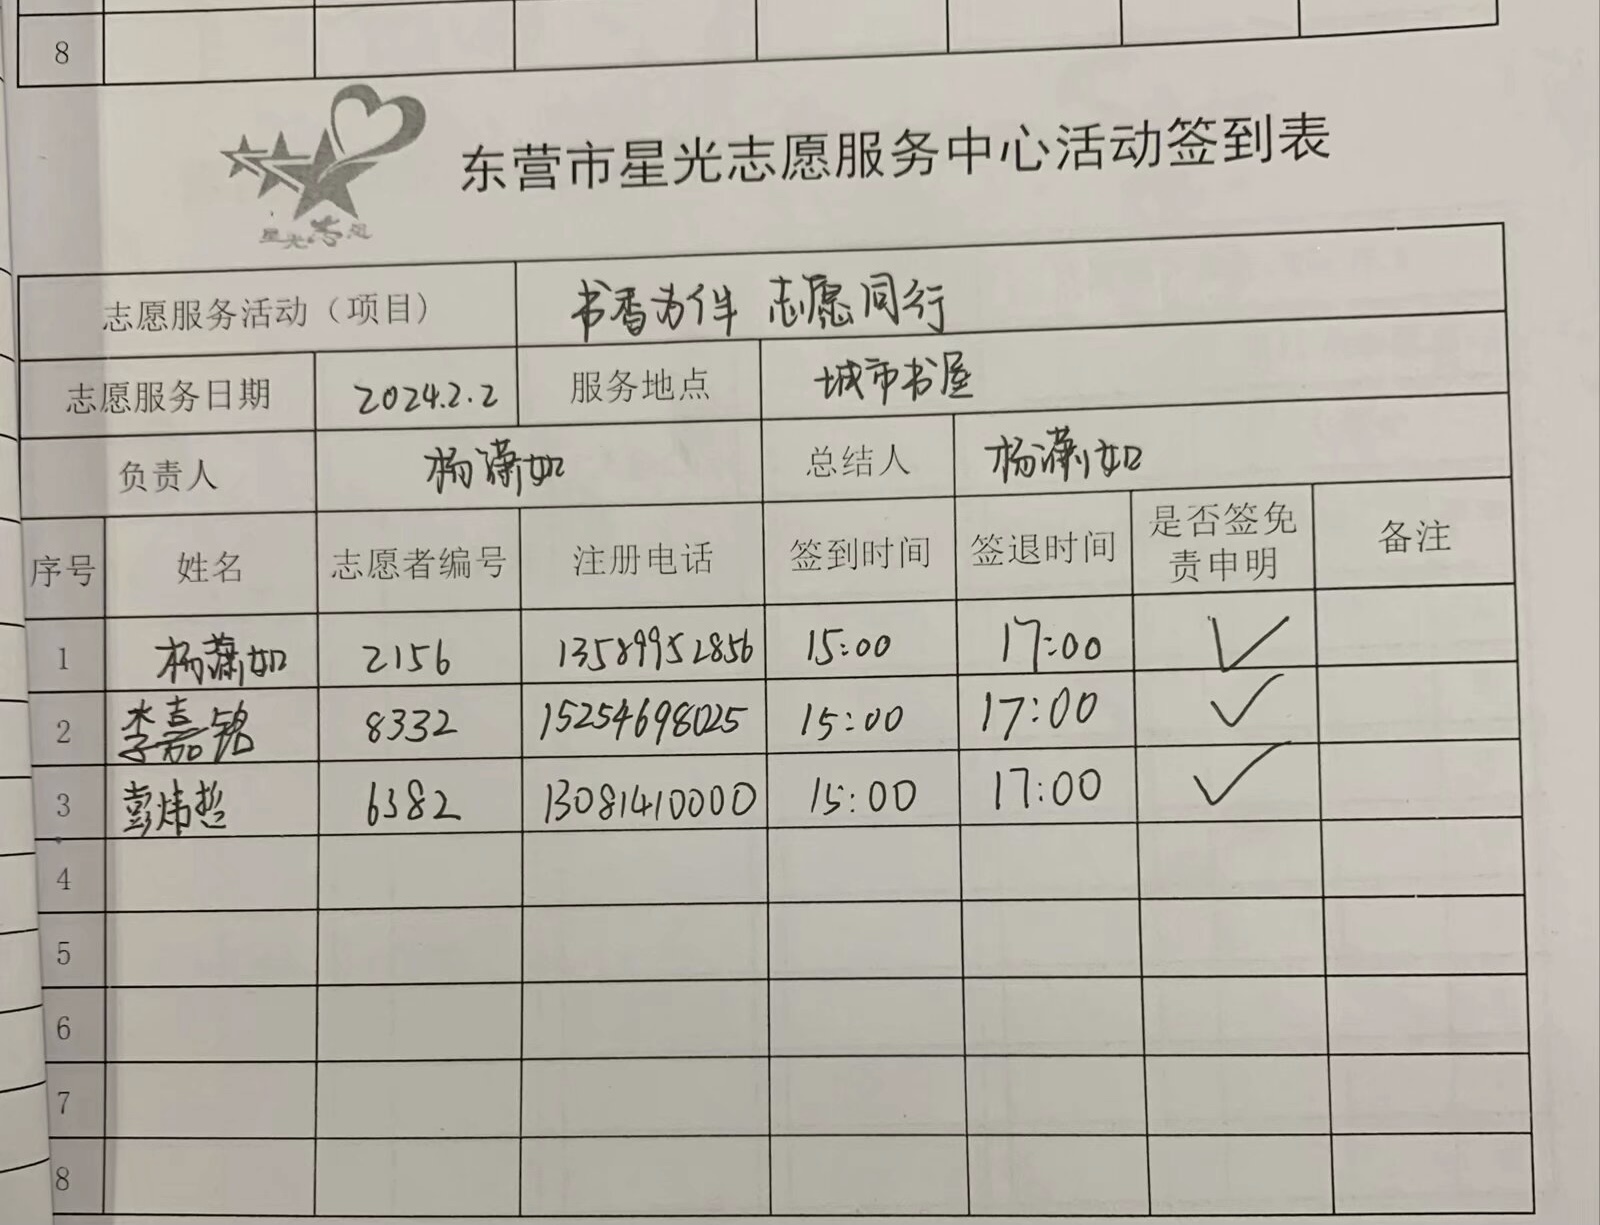 8
星光志愿
东营市星光志愿服务中心活动签到表
志愿服务活动（项目） 书香为伴 志愿同行
志愿服务日期 2024.2.2 服务地点 城市书屋
负责人 杨潇如 总结人 杨潇如
序号 姓名 志愿者编号 注册电话 签到时间 签退时间 是否签免责申明 备注
1 杨潇如 2156 13589952856 15:00 17:00 ✓
2 李嘉铭 8332 15254698025 15:00 17:00 ✓
3 彭炜哲 6382 13081410000 15:00 17:00 ✓
4
5
6
7
8